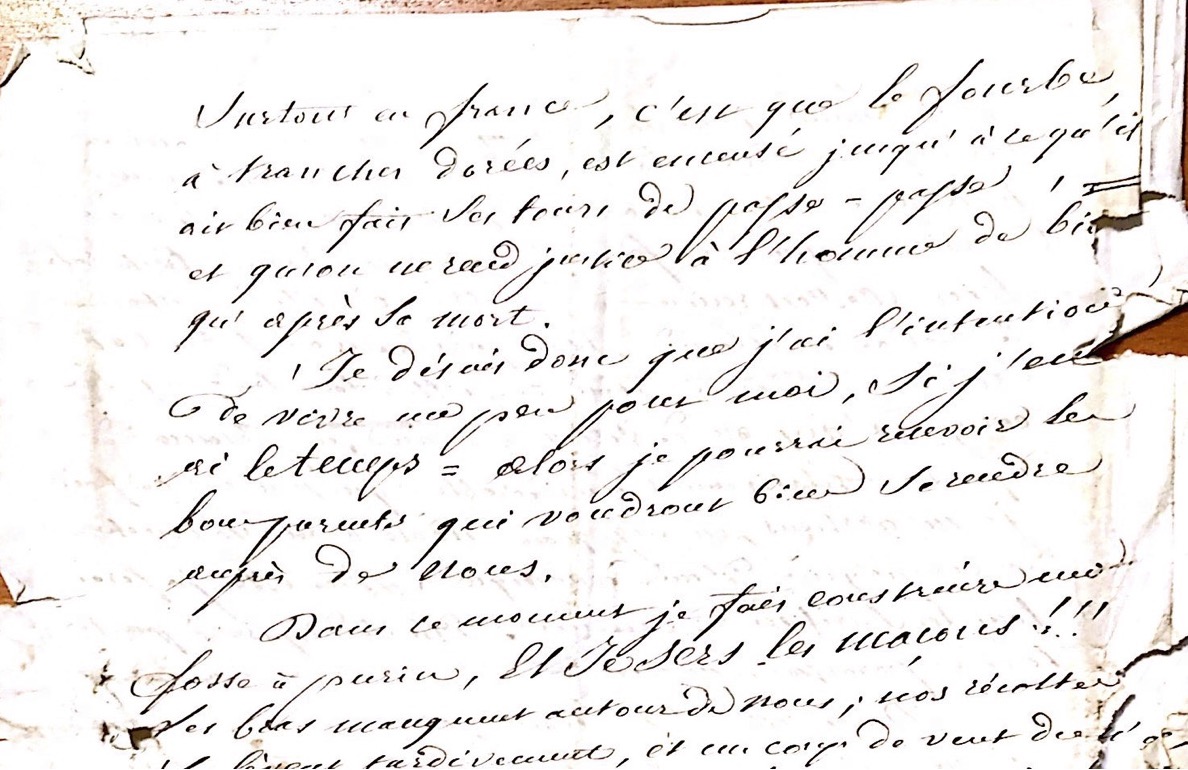 Surtout en france, c'est que le fourbe,
à tranches dorées, est encensé jusqu'à ce qu'il
ait bien fait ses tours de passe = passe !
et qu'on ne rend justice à l'homme de bien
qu'après sa mort.
Je disais donc que j'ai l'intention
de vivre un peu pour moi, si j'en
ai le temps = alors je pourrai recevoir les
bons parents qui voudront bien se rendre
auprès de nous.
Dans ce moment je fais construire une
fosse à purin, Et Je sers les maçons !!!
les bras manquent autour de nous ; nos récoltes
tardivement, et un coup de vent